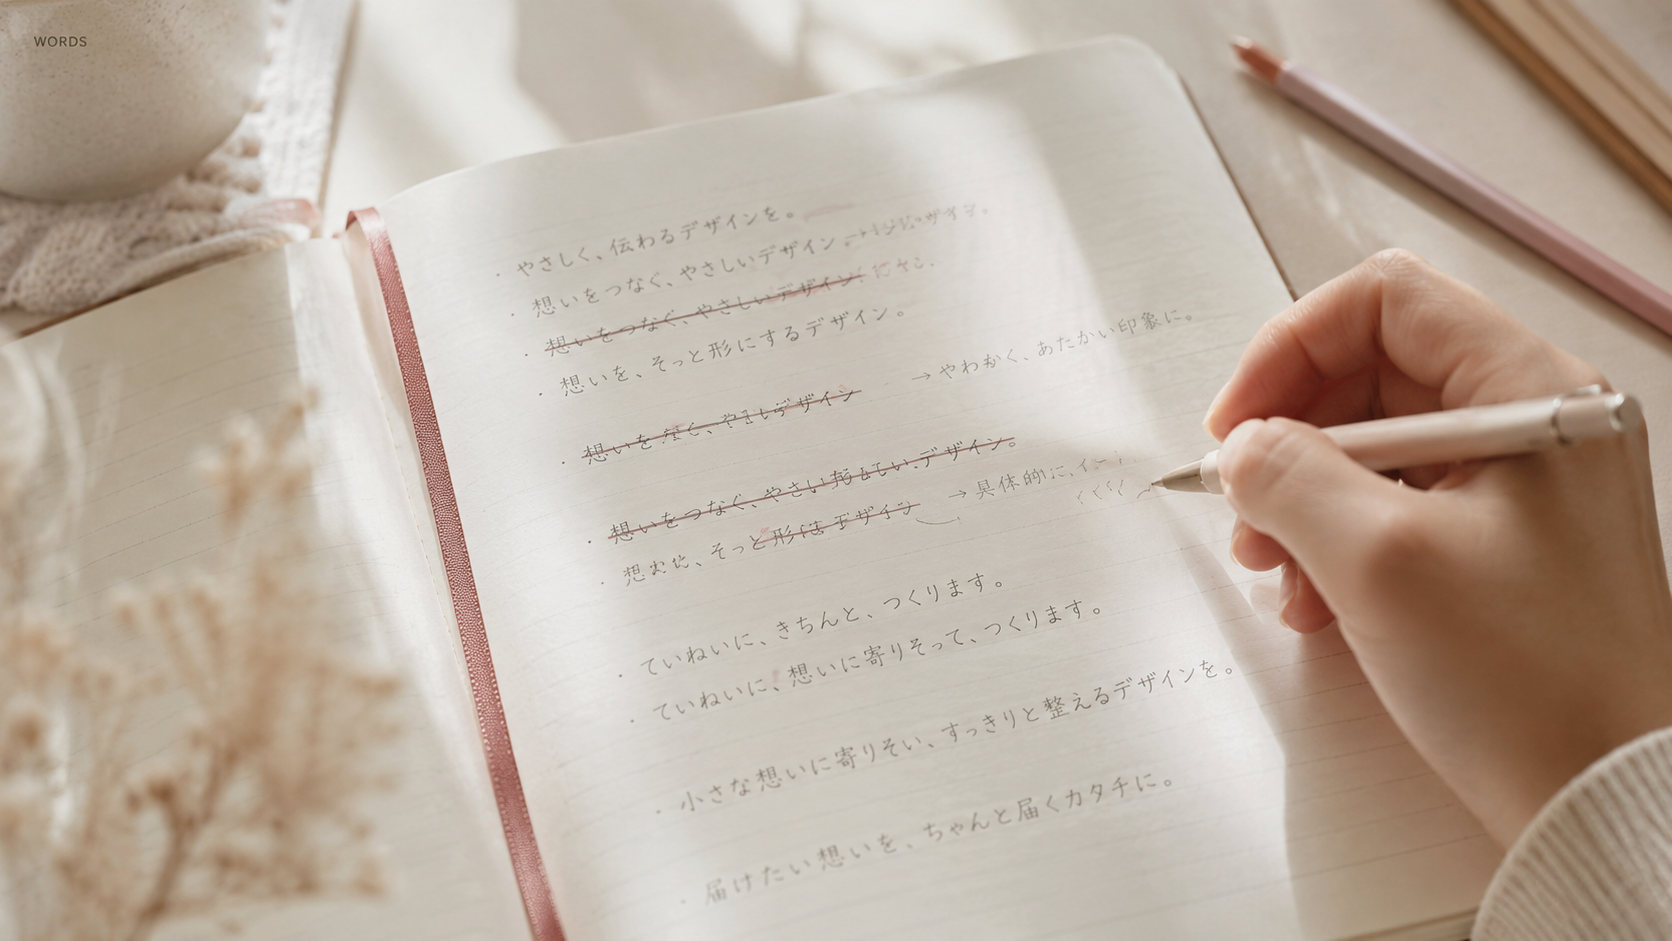 WORDS
・やさしく、伝わるデザインを。
・想いをつなぐ、やさしいデザイン。
・想いをつなぐ、やさしいデザイン
・想いを、そっと形にするデザイン。
→やわかく、あたかい印象に。
・想いを デザイン
・想いをつなぐ、やさい デザイン。
→具体的に、イ
・想 、そっと形 デザイン
・ていねいに、きちんと、つくります。
・ていねいに、想いに寄りそって、つくります。
・小さな想いに寄りそい、すっきりと整えるデザインを。
・届けたい想いを、ちゃんと届くカタチに。